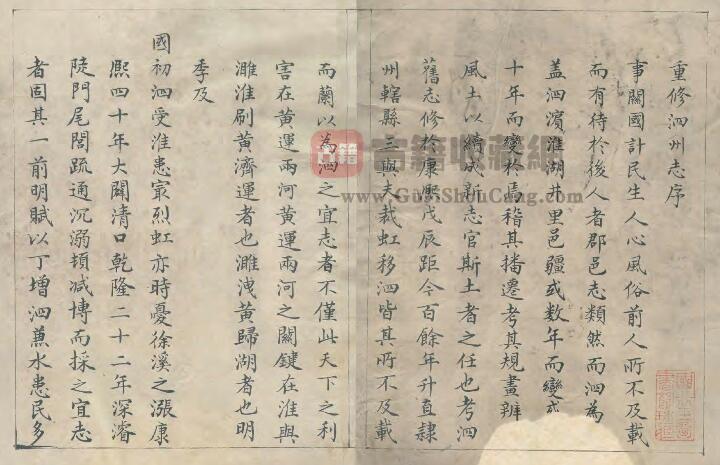 重修泗州志序
事關國計民生人心風俗前人所不及載
而有待於後人者郡邑志類然而泗為
盖泗濱淮湖井里邑疆或数年而變或
十年而變於焉稽其播遷考其規畫辨
風土以續成新志官斯土者之任也考泗
舊志修於康熙戊辰距今百餘年升直隷
州轄縣三與夫裁虹移泗皆其所不及載
而蘭以為泗之宜志者不僅此天下之利
害在黄運兩河黄運兩河之關鍵在淮與
濉淮刷黄濟運者也濉洩黄歸湖者也明
季及
國初泗受淮患㝡烈虹亦時憂徐溪之漲康
熈四十年大闢清口乾隆二十二年深濬
陡門尾閭疏通沉溺頓减博而採之宜志
者固其一前明賦以丁增泗蕉水患民多
古籍收藏網
www.GuJiShouCang.com